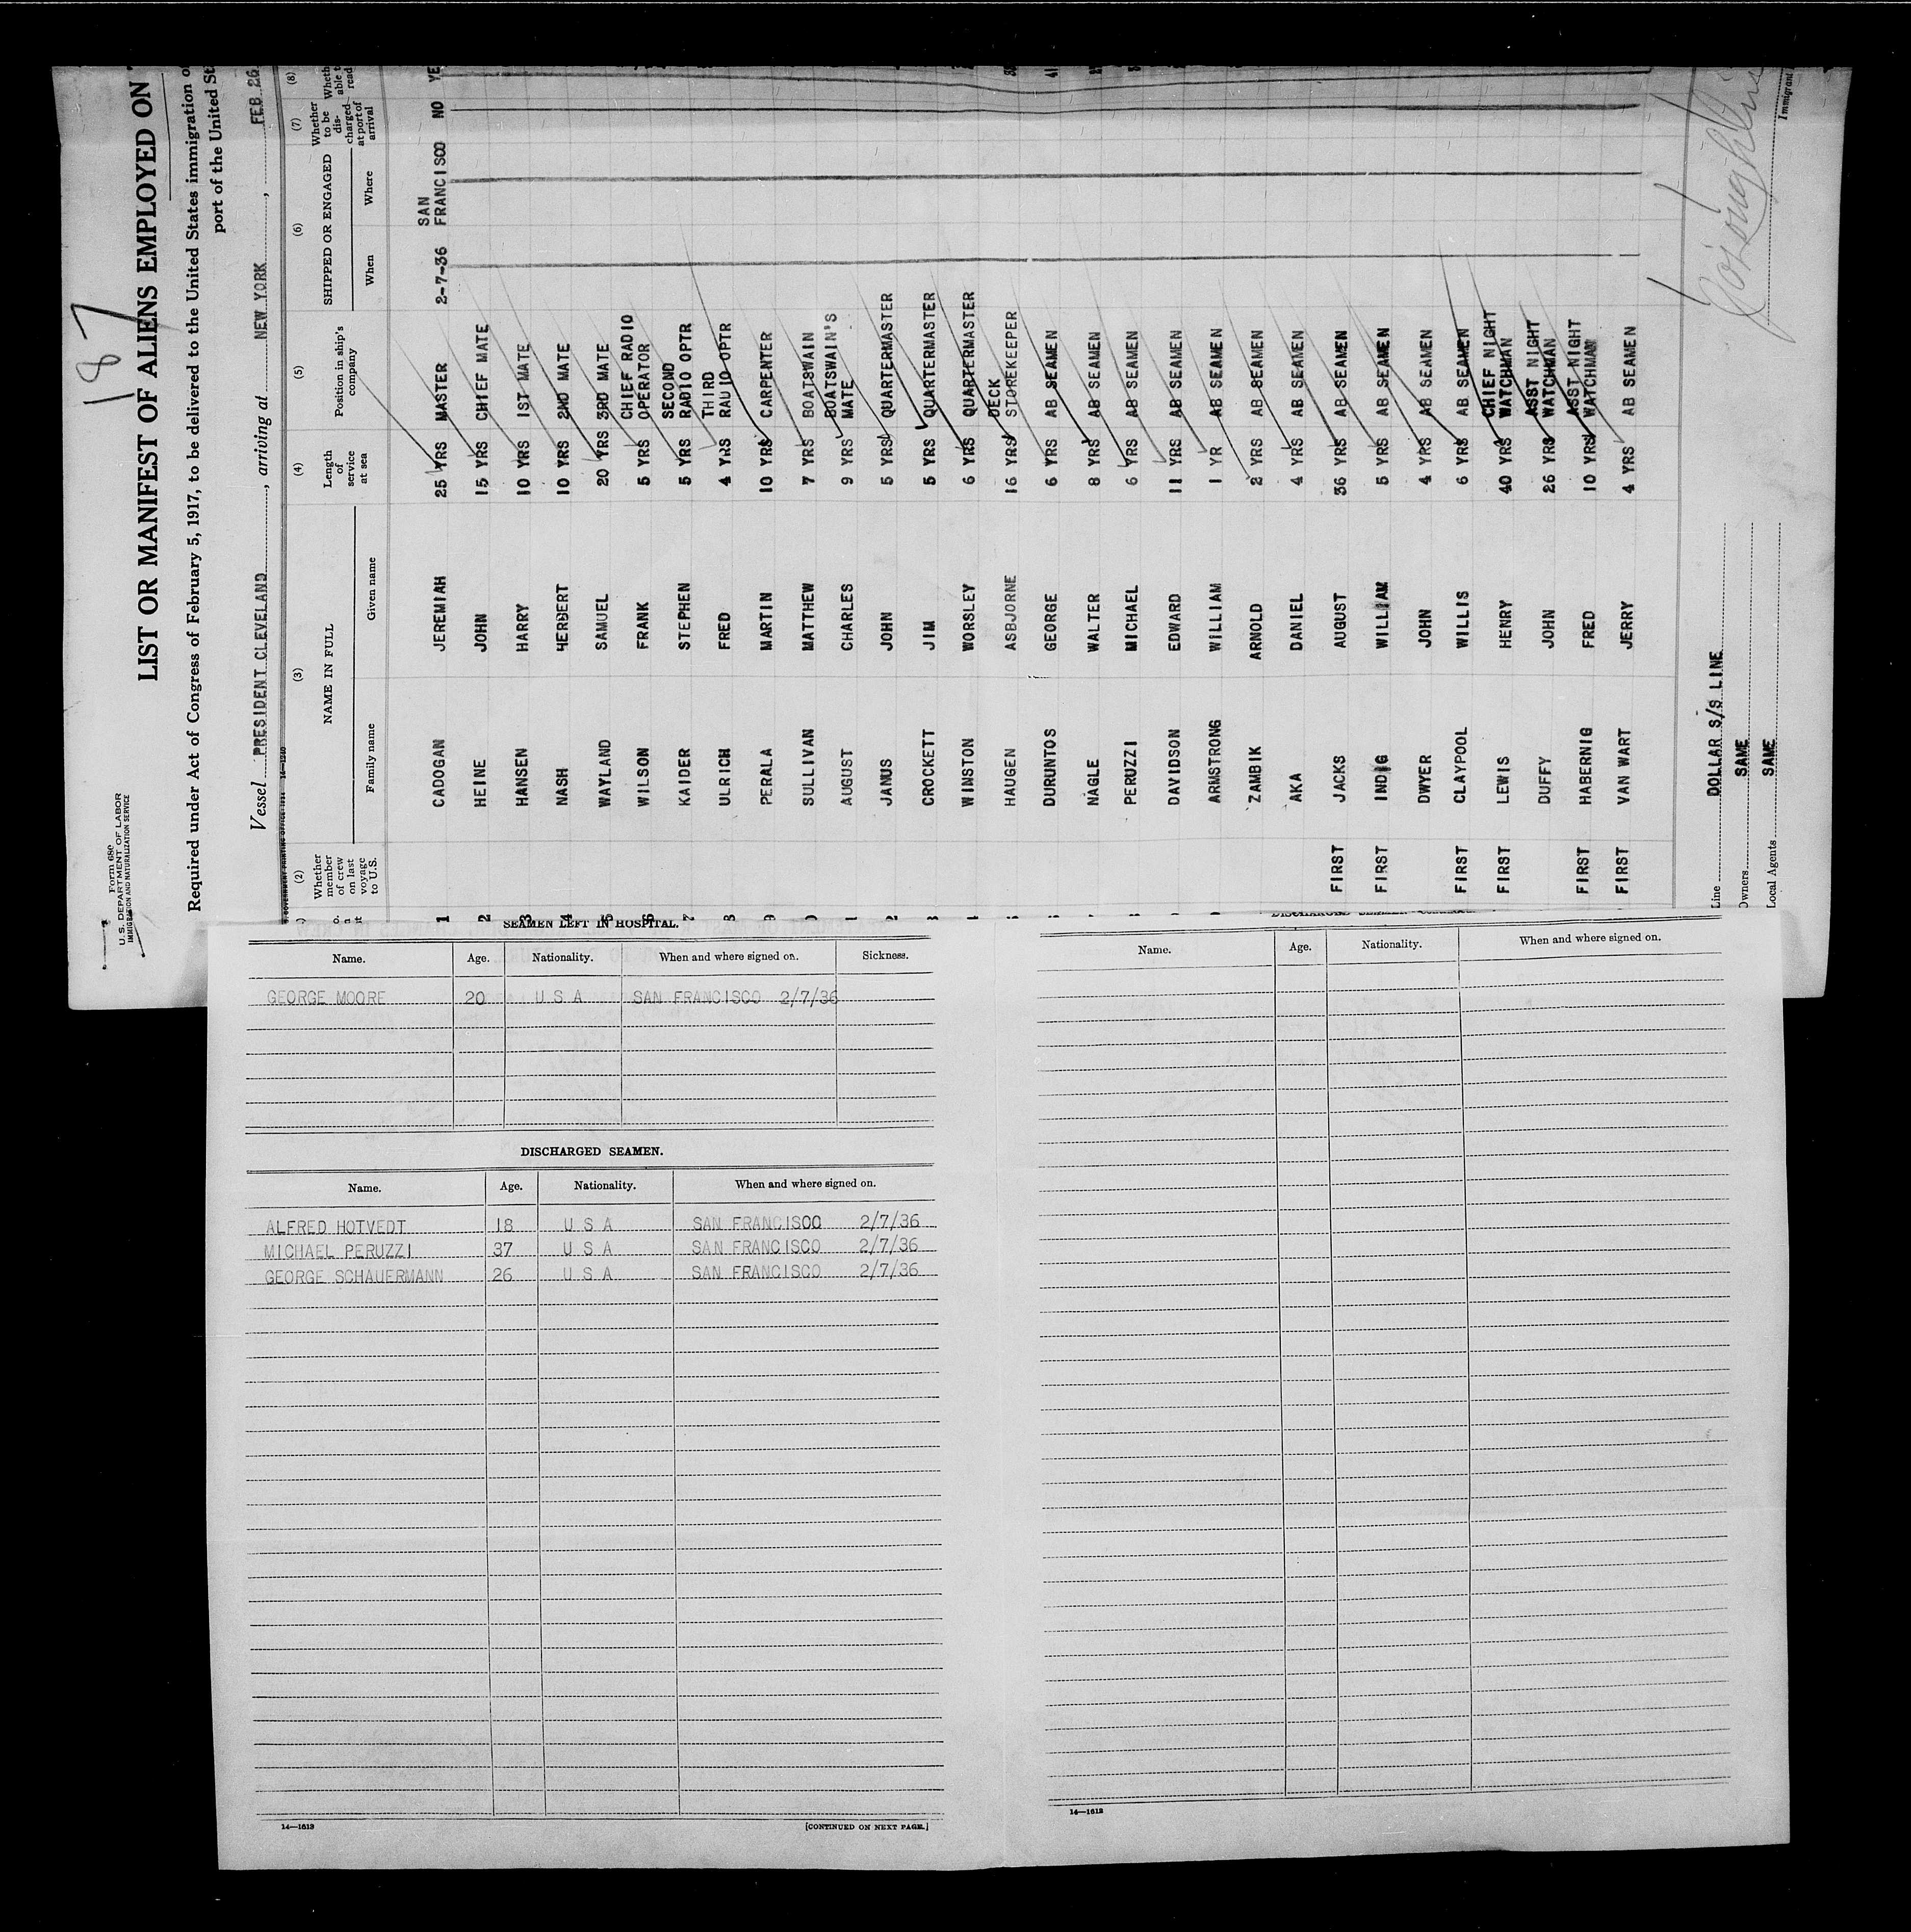 187
Form 680
U. S. DEPARTMENT OF LABOR
IMMIGRATION AND NATURALIZATION SERVICE
LIST OR MANIFEST OF ALIENS EMPLOYED ON
Required under Act of Congress of February 5, 1917, to be delivered to the United States immigration
port of the United
Vessel PRESIDENT CLEVELAND, arriving at NEW YORK, FEB 26
(2) (3) (4) (5) (6) (7) (8)
Whether member of crew on last voyage to U.S.
NAME IN FULL
Family name Given name
Length of service at sea
Position in ship's company
SHIPPED OR ENGAGED
When Where
Whether to be discharged at port of arrival
1 CADOGAN JEREMIAH 25 YRS MASTER 2-7-36 SAN FRANCISCO NO
2 HEINE JOHN 15 YRS CHIEF MATE
3 HANSEN HARRY 10 YRS 1ST MATE
4 NASH HERBERT 10 YRS 2ND MATE
5 WAYLAND SAMUEL 20 YRS 3RD MATE
6 WILSON FRANK 5 YRS CHIEF RADIO OPERATOR
7 KAIDER STEPHEN 5 YRS SECOND RADIO OPTR
8 ULRICH FRED 4 YRS THIRD RADIO OPTR
9 PERALA MARTIN 10 YRS CARPENTER
SULLIVAN MATTHEW 7 YRS BOATSWAIN
AUGUST CHARLES 9 YRS BOATSWAIN'S MATE
JANUS JOHN 5 YRS QUARTERMASTER
CROCKETT JIM 5 YRS QUARTERMASTER
WINSTON WORSLEY 6 YRS QUARTERMASTER
HAUGEN ASBJORNE 16 YRS DECK STOREKEEPER
DURUNTOS GEORGE 6 YRS AB SEAMEN
NAGLE WALTER 8 YRS AB SEAMEN
PERUZZI MICHAEL 6 YRS AB SEAMEN
DAVIDSON EDWARD 11 YRS AB SEAMEN
ARMSTRONG WILLIAM 1 YR AB SEAMEN
ZAMBIK ARNOLD 2 YRS AB SEAMEN
AKA DANIEL 4 YRS AB SEAMEN
FIRST JACKS AUGUST 36 YRS AB SEAMEN
FIRST INDIG WILLIAM 5 YRS AB SEAMEN
DWYER JOHN 4 YRS AB SEAMEN
FIRST CLAYPOOL WILLIS 6 YRS AB SEAMEN
FIRST LEWIS HENRY 40 YRS CHIEF NIGHT WATCHMAN
DUFFY JOHN 26 YRS ASST NIGHT WATCHMAN
FIRST HABERNIG FRED 10 YRS ASST NIGHT WATCHMAN
FIRST VAN WART JERRY 4 YRS AB SEAMEN
Line DOLLAR S/S LINE
Owners SAME
Local Agents SAME
Immigrant
SEAMEN LEFT IN HOSPITAL.
Name. Age. Nationality. When and where signed on. Sickness.
GEORGE MOORE 20 U S A SAN FRANCISCO 2/7/36
DISCHARGED SEAMEN.
Name. Age. Nationality. When and where signed on.
ALFRED HOTVEDT 18 U S A SAN FRANCISCO 2/7/36
MICHAEL PERUZZI 37 U S A SAN FRANCISCO 2/7/36
GEORGE SCHAUERMANN 26 U S A SAN FRANCISCO 2/7/36
14—1613 [CONTINUED ON NEXT PAGE.]
Name. Age. Nationality. When and where signed on.
14—1613